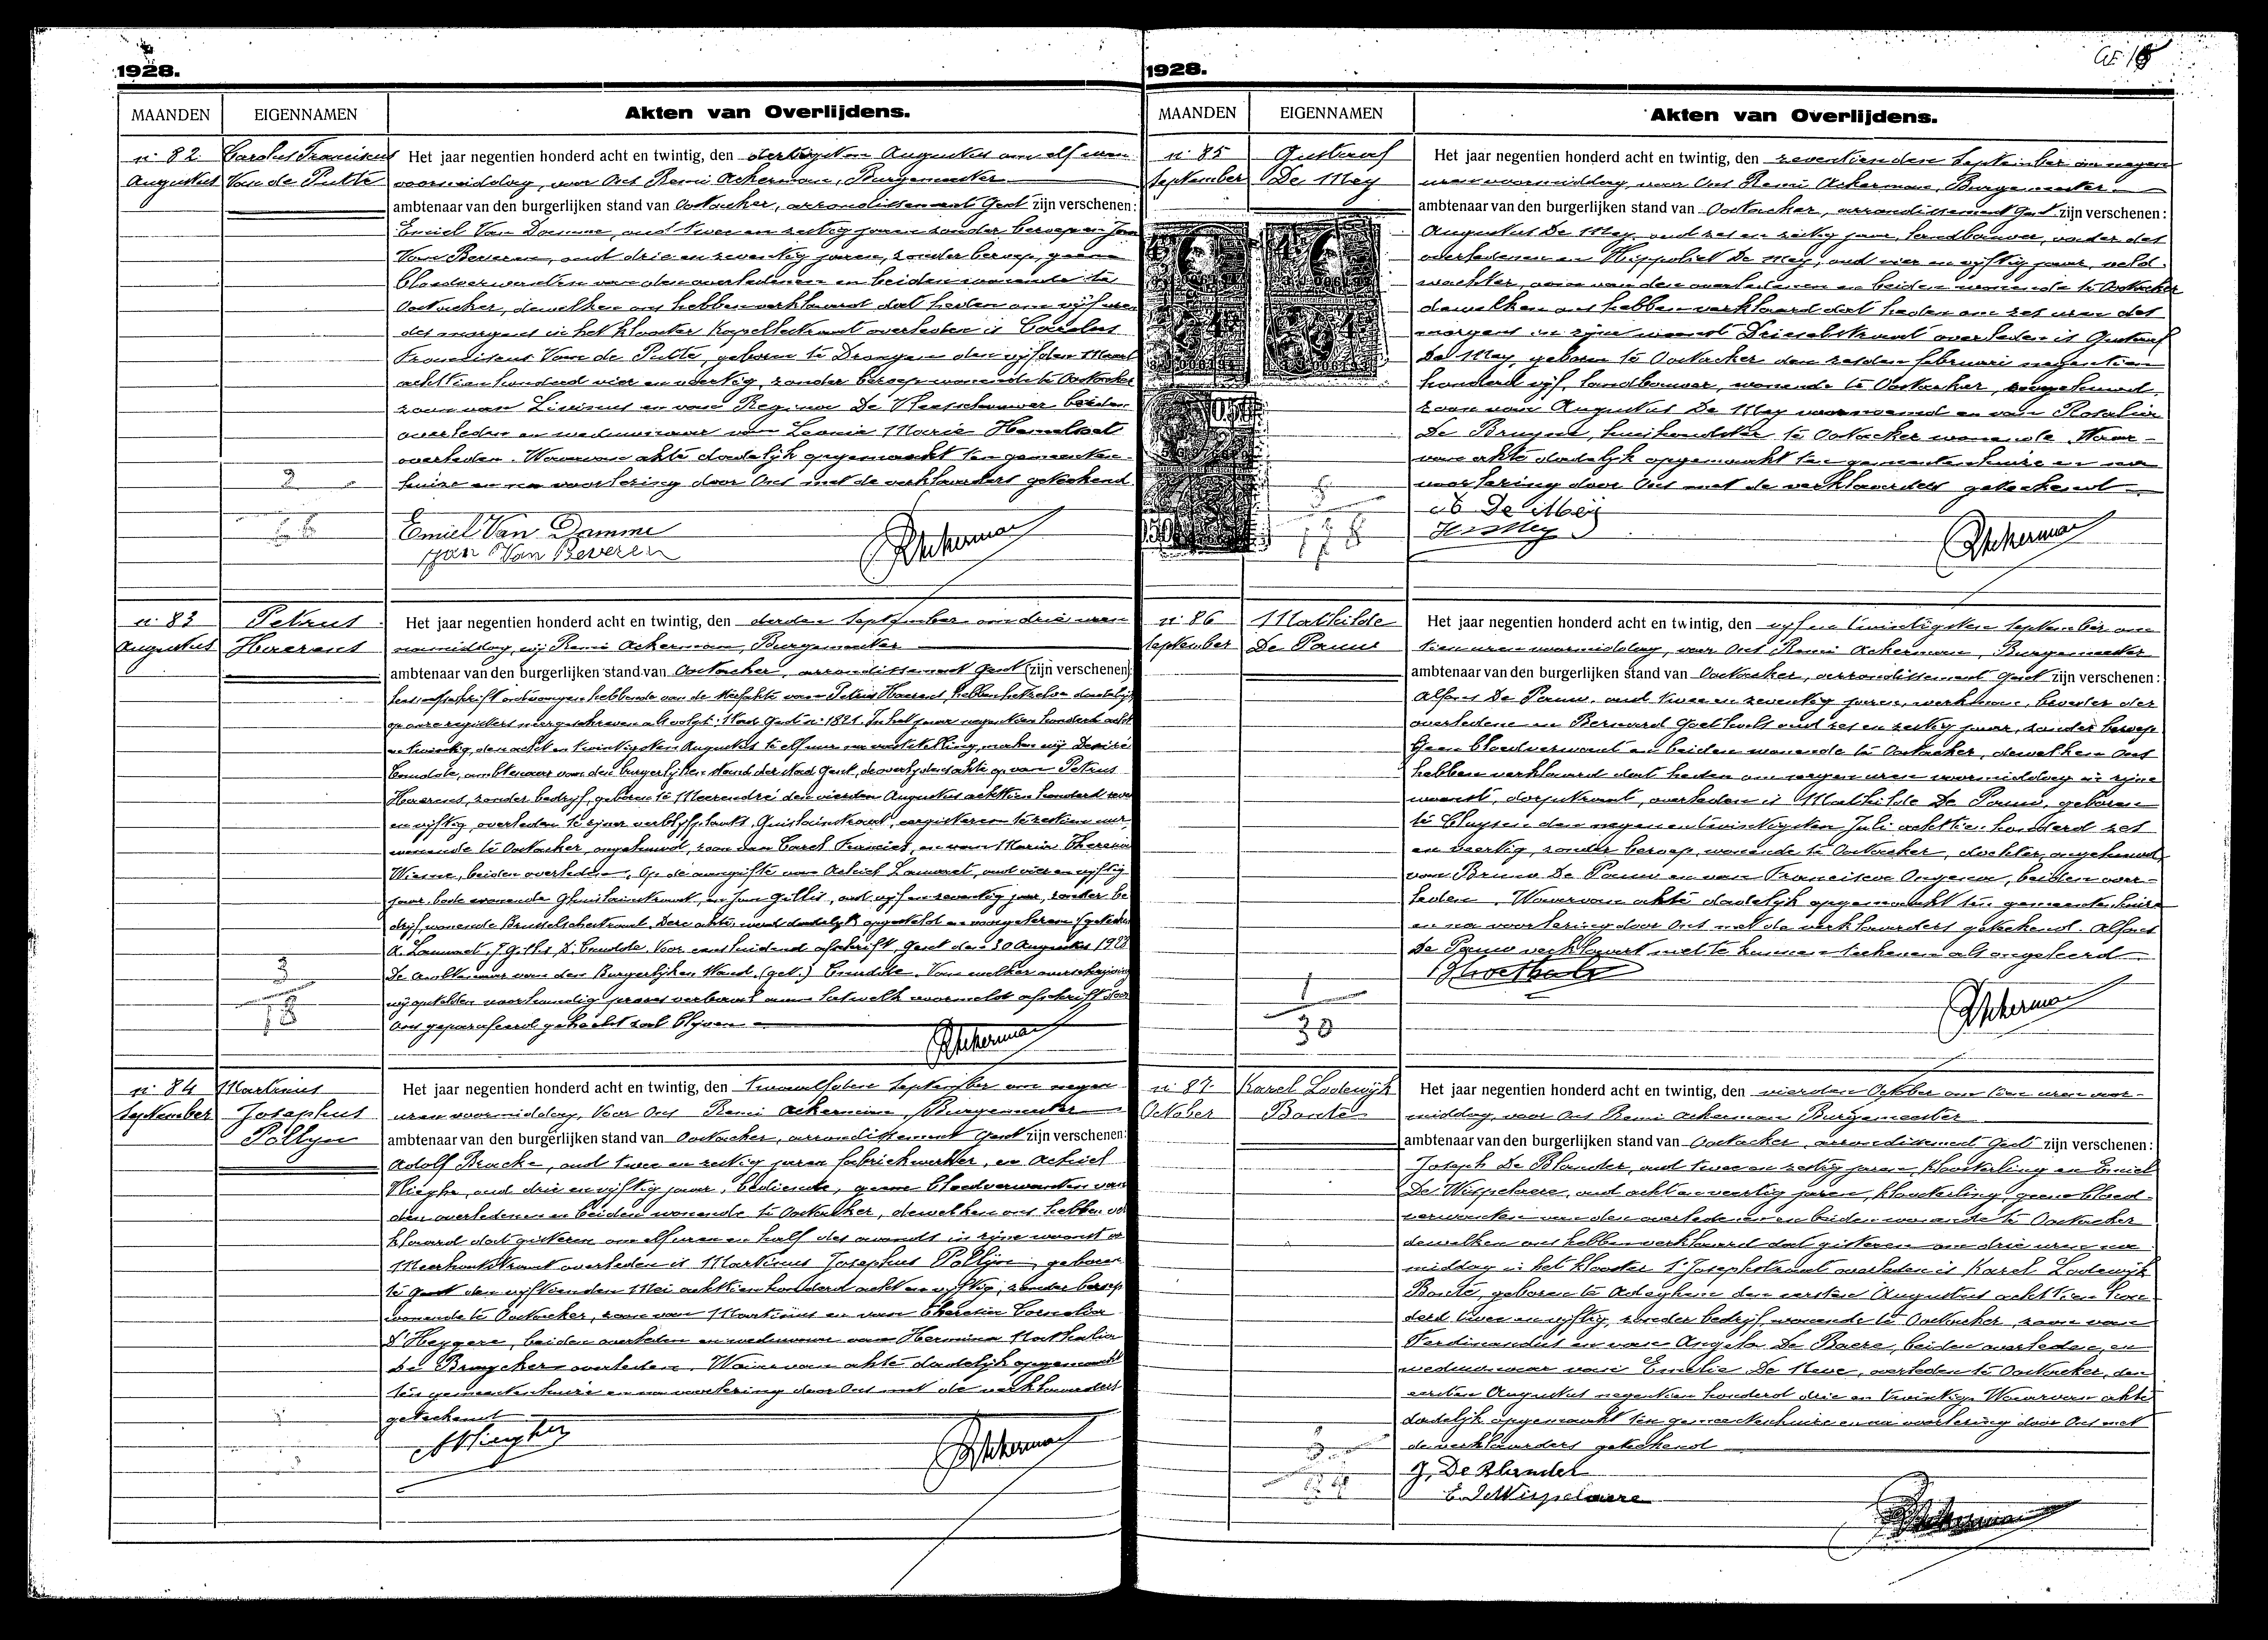 1928.
MAANDEN EIGENNAMEN Akten van Overlijdens.
n: 82 Carolus Franciscus
Augustus Van de Putte
Het jaar negentien honderd acht en twintig, den dertigsten Augustus om elf uren
voormiddag, voor Ons Remi Ackerman, Burgemeester
ambtenaar van den burgerlijken stand van Oostacker, arrondissement Gent zijn verschenen:
Emiel Van Damme, oud twee en zestig jaren zonder beroep en Jan
Van Beveren, oud drie en zeventig jaren, zonder beroep, geene
bloedverwanten van den overledenen en beiden wonende te
Oostacker, dewelken ons hebben verklaard dat heden om vijf uren
des morgens in het klooster Kapellestraat overleden is Carolus
Franciscus Van de Putte, geboren te Drongen den vijfden Maart
achttien honderd vier en veertig, zonder beroep wonende te Oostacker
zoon van Livinus en van Regina De Vleeschauwer beiden
overleden en weduwnaar van Leonia Marie
overleden. Waarvan akte dadelijk opgemaakt ten gemeenten
huize en na voorlezing door Ons met de verklaarders geteekend
Emiel Van Damme
Jan Van Beveren
RAckerman
n: 83 Petrus
Augustus Haerens
Het jaar negentien honderd acht en twintig, den derden September om drie uren
namiddag, wij Remi Ackerman, Burgemeester
ambtenaar van den burgerlijken stand van Oostacker, arrondissement Gent (zijn verschenen)
een afschrift ontvangen hebbende van de sterfakte van Petrus Haerens, hebben hetzelve dadelijk
op onze registers neergeschreven als volgt: Stad Gent n: 1821. In het jaar negentien honderd acht
en twintig, den acht en twintigsten Augustus te elf uur na vaststelling, maken wij Desiré
ambtenaar van den burgerlijken stand der stad Gent, de overlijdensakte op van Petrus
Haerens, zonder bedrijf, geboren te Meerendré den vierden Augustus achttien honderd
en vijftig, overleden te zijner verblijfplaats, eergisteren te zestien uur,
wonende te Oostacker, ongehuwd, zoon van Carel Francies, en van Maria Theresia
beiden overleden. Op de aangifte van Achiel Lammens, oud vier en vijftig
jaar, bode wonende en Jan Gillis, oud vijf en zeventig jaar, zonder be
drijf, wonende Brusselschestraat. Deze akte werd dadelijk opgesteld en voorgelezen (geteekend
A. Lammens, J. Gillis, D. Voor eensluidend afschrift, Gent den 30 Augustus 1928
De ambtenaar van den Burgerlijken Stand (get.) Van welker overschrijving
wij opstelden proces verbaal aan hetwelk voormeld afschrift door
Ons geparafeerd gehecht zal blijven
RAckerman
n: 84 Martinus
September Josephus
Pollyn
Het jaar negentien honderd acht en twintig, den twaalfden September om negen
uren voormiddag, Voor Ons Remi Ackerman, Burgemeester
ambtenaar van den burgerlijken stand van Oostacker, arrondissement Gent zijn verschenen:
Adolf Bracke, oud twee en zestig jaren fabriekwerker, en Achiel
Vlieghe, oud drie en vijftig jaar, bediende, geene bloedverwanten van
den overledenen en beiden wonende te Oostacker, dewelken ons hebben ver
klaard dat gisteren om elf uren en half des avonds in zijne woonst
Meerhoutstraat overleden is Martinus Josephus Pollyn, geboren
te Gent den vijftienden Mei achttien honderd acht en vijftig, zonder beroep
wonende te Oostacker, zoon van Martinus en van Theresia Cornelia
D'Heygere, beiden overleden en weduwnaar van Hermina Nathalia
De Bruycker overleden. Waarvan akte dadelijk opgemaakt
ten gemeentenhuize en na voorlezing door Ons met de verklaarders
geteekend
AVlieghe
RAckerman
1928.
MAANDEN EIGENNAMEN Akten van Overlijdens.
n: 85 Gustaaf
September De Mey
Het jaar negentien honderd acht en twintig, den zeventienden September om negen
uren voormiddag, voor Ons Remi Ackerman, Burgemeester
ambtenaar van den burgerlijken stand van Oostacker, arrondissement Gent zijn verschenen:
Augustus De Mey, oud zes en zestig jaar, landbouwer, vader des
overledenen en Hippoliet De Mey, oud vier en vijftig jaar, veld-
wachter, oom van den overledenen en beiden wonende te Oostacker
dewelken ons hebben verklaard dat heden om zes uren des
morgens in zijne woonst Drieselstraat overleden is Gustaaf
De Mey, geboren te Oostacker den zesden februari negentien
honderd vijf, landbouwer, wonende te Oostacker, ongehuwd,
zoon van Augustus De Mey voornoemd en van Rosalia
De Bruyne, huishoudster te Oostacker wonende. Waar-
van akte dadelijk opgemaakt ten gemeentenhuize en na
voorlezing door Ons met de verklaarders geteekend
A De Mey
H De Mey
RAckerman
n: 86 Mathilde
September De Pauw
Het jaar negentien honderd acht en twintig, den vijf en twintigsten September om
tien uren voormiddag, voor Ons Remi Ackerman, Burgemeester
ambtenaar van den burgerlijken stand van Oostacker, arrondissement Gent zijn verschenen:
Alfons De Pauw, oud twee en zeventig jaren, werkman, broeder der
overledene en Bernard Goethals oud zes en zestig jaar, zonder beroep
Geen bloedverwant en beiden wonende te Oostacker, dewelken Ons
hebben verklaard dat heden om negen uren voormiddag in zijne
woonst, dorpstraat, overleden is Mathilde De Pauw, geboren
te Cluysen den negen en twintigsten Juli achttien honderd zes
en veertig, zonder beroep, wonende te Oostacker, dochter, ongehuwd
van Bruno De Pauw en van Francisca Ongena, beiden over-
leden. Waarvan akte dadelijk opgemaakt ten gemeentenhuize
en na voorlezing door Ons met de verklaarders geteekend. Alfons
De Pauw verklaart niet te kunnen teekenen als ongeleerd
BGoethals
RAckerman
1
30
n: 87 Karel Lodewijk
October Bonte
Het jaar negentien honderd acht en twintig, den vierden October om tien uren voor-
middag, voor Ons Remi Ackerman Burgemeester
ambtenaar van den burgerlijken stand van Oostacker, arrondissement Gent zijn verschenen:
Joseph De Blander, oud twee en zestig jaren, kloosterling en Emiel
De Wispelaere, oud acht en veertig jaren, kloosterling, geene bloed-
verwanten van den overledenen en beiden wonende te Oostacker
dewelken ons hebben verklaard dat gisteren om drie uren na
middag in het klooster St Josephstraat overleden is Karel Lodewijk
Bonte, geboren te Adeghem den eersten Augustus achttien hon
derd twee en vijftig, zonder bedrijf, wonende te Oostacker, zoon van
Ferdinandus en van Angela De Baere, beiden overleden, en
weduwnaar van Emelie De Neve, overleden te Oostacker, den
eersten Augustus negentien honderd drie en twintig. Waarvan akte
dadelijk opgemaakt ten gemeentenhuize en na voorlezing door Ons met
de verklaarders geteekend
J. De Blander
E. De Wispelaere
RAckerman